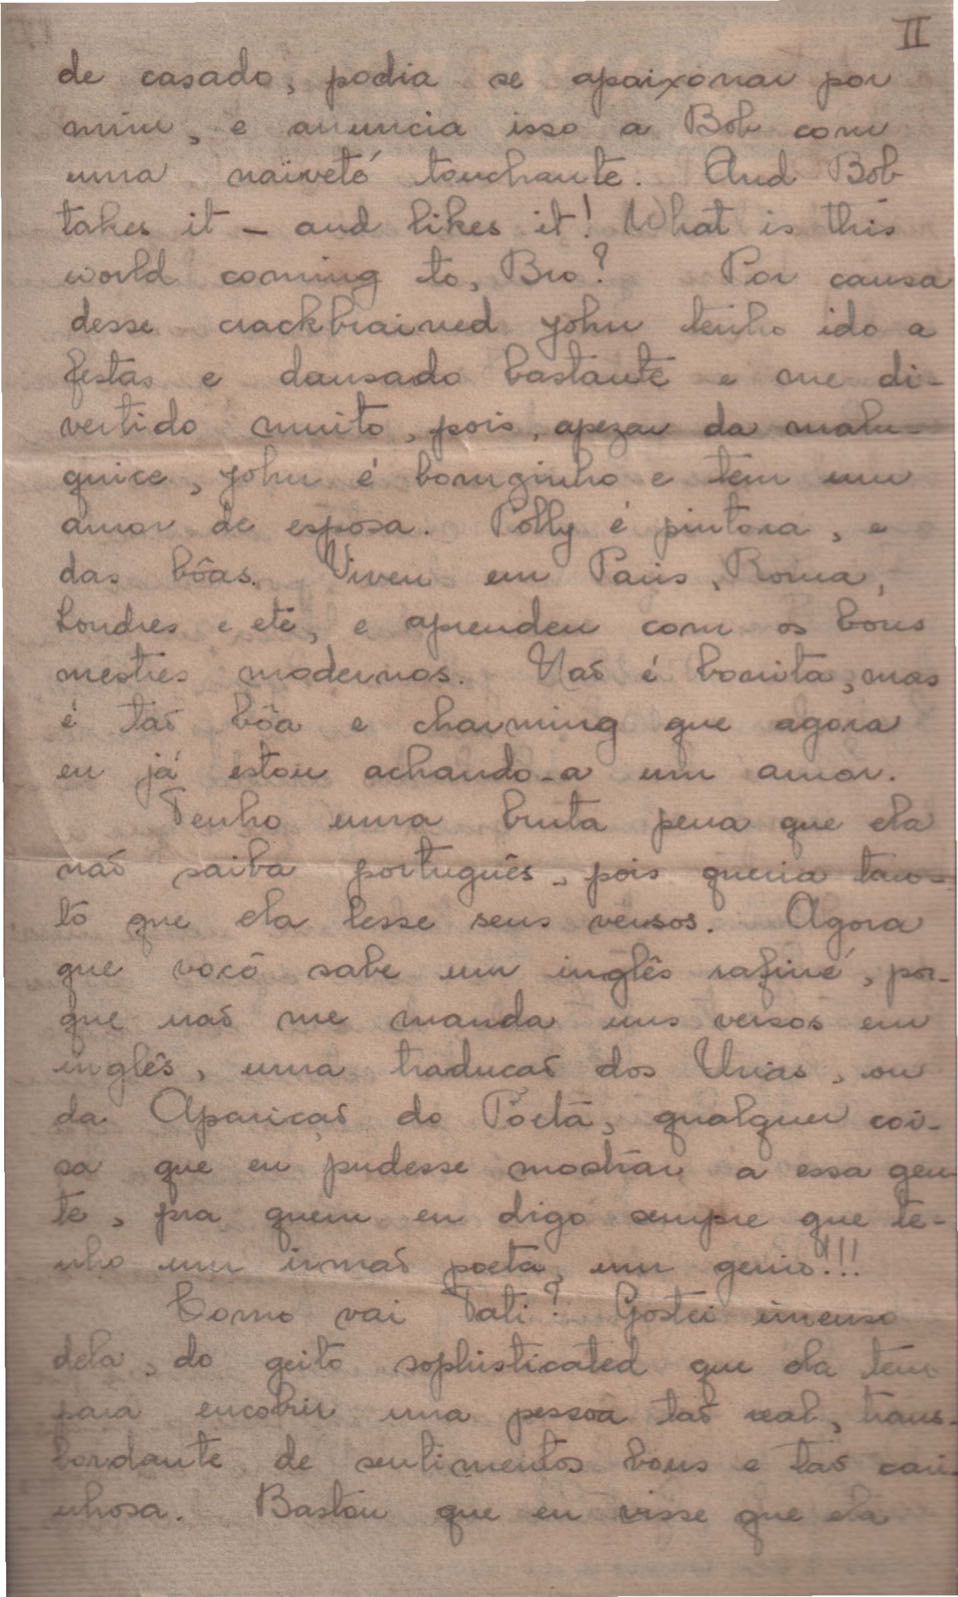 II
de casado, podia se apaixonar por
mim, e anuncia isso a Bob com
uma naïveté touchante. And Bob
takes it – and likes it! What is this
world coming to, Bro? Por causa
desse crackbrained John tenho ido a
festas e dansado bastante e me di-
vertido muito, pois, apezar da malu-
quice, John é bomzinho e tem um
amor de esposa. Polly é pintora, e
das bôas. Viveu em Paris, Roma,
Londres e etc, e aprendeu com os bons
mestres modernos. Não é bonita, mas
é tão bôa e charming que agora
eu já estou achando-a um amor.
Tenho uma bruta pena que ela
não saiba português, pois queria tan-
to que ela lesse seus versos. Agora
que você sabe um inglês rafiné, por-
que não me manda uns versos em
inglês, uma traducão dos Urias, ou
da Aparicão do Poeta, qualquer coi-
sa que eu pudesse mostrar a essa gen
te, pra quem eu digo sempre que te-
nho um irmão poeta, um genio!!!
Como vai Tati? Gostei imenso
dela, do geito sophisticated que ela tem
para encobrir uma pessoa tão real, trans-
bordante de sentimentos bons e tão cari
nhosa. Bastou que eu visse que ela